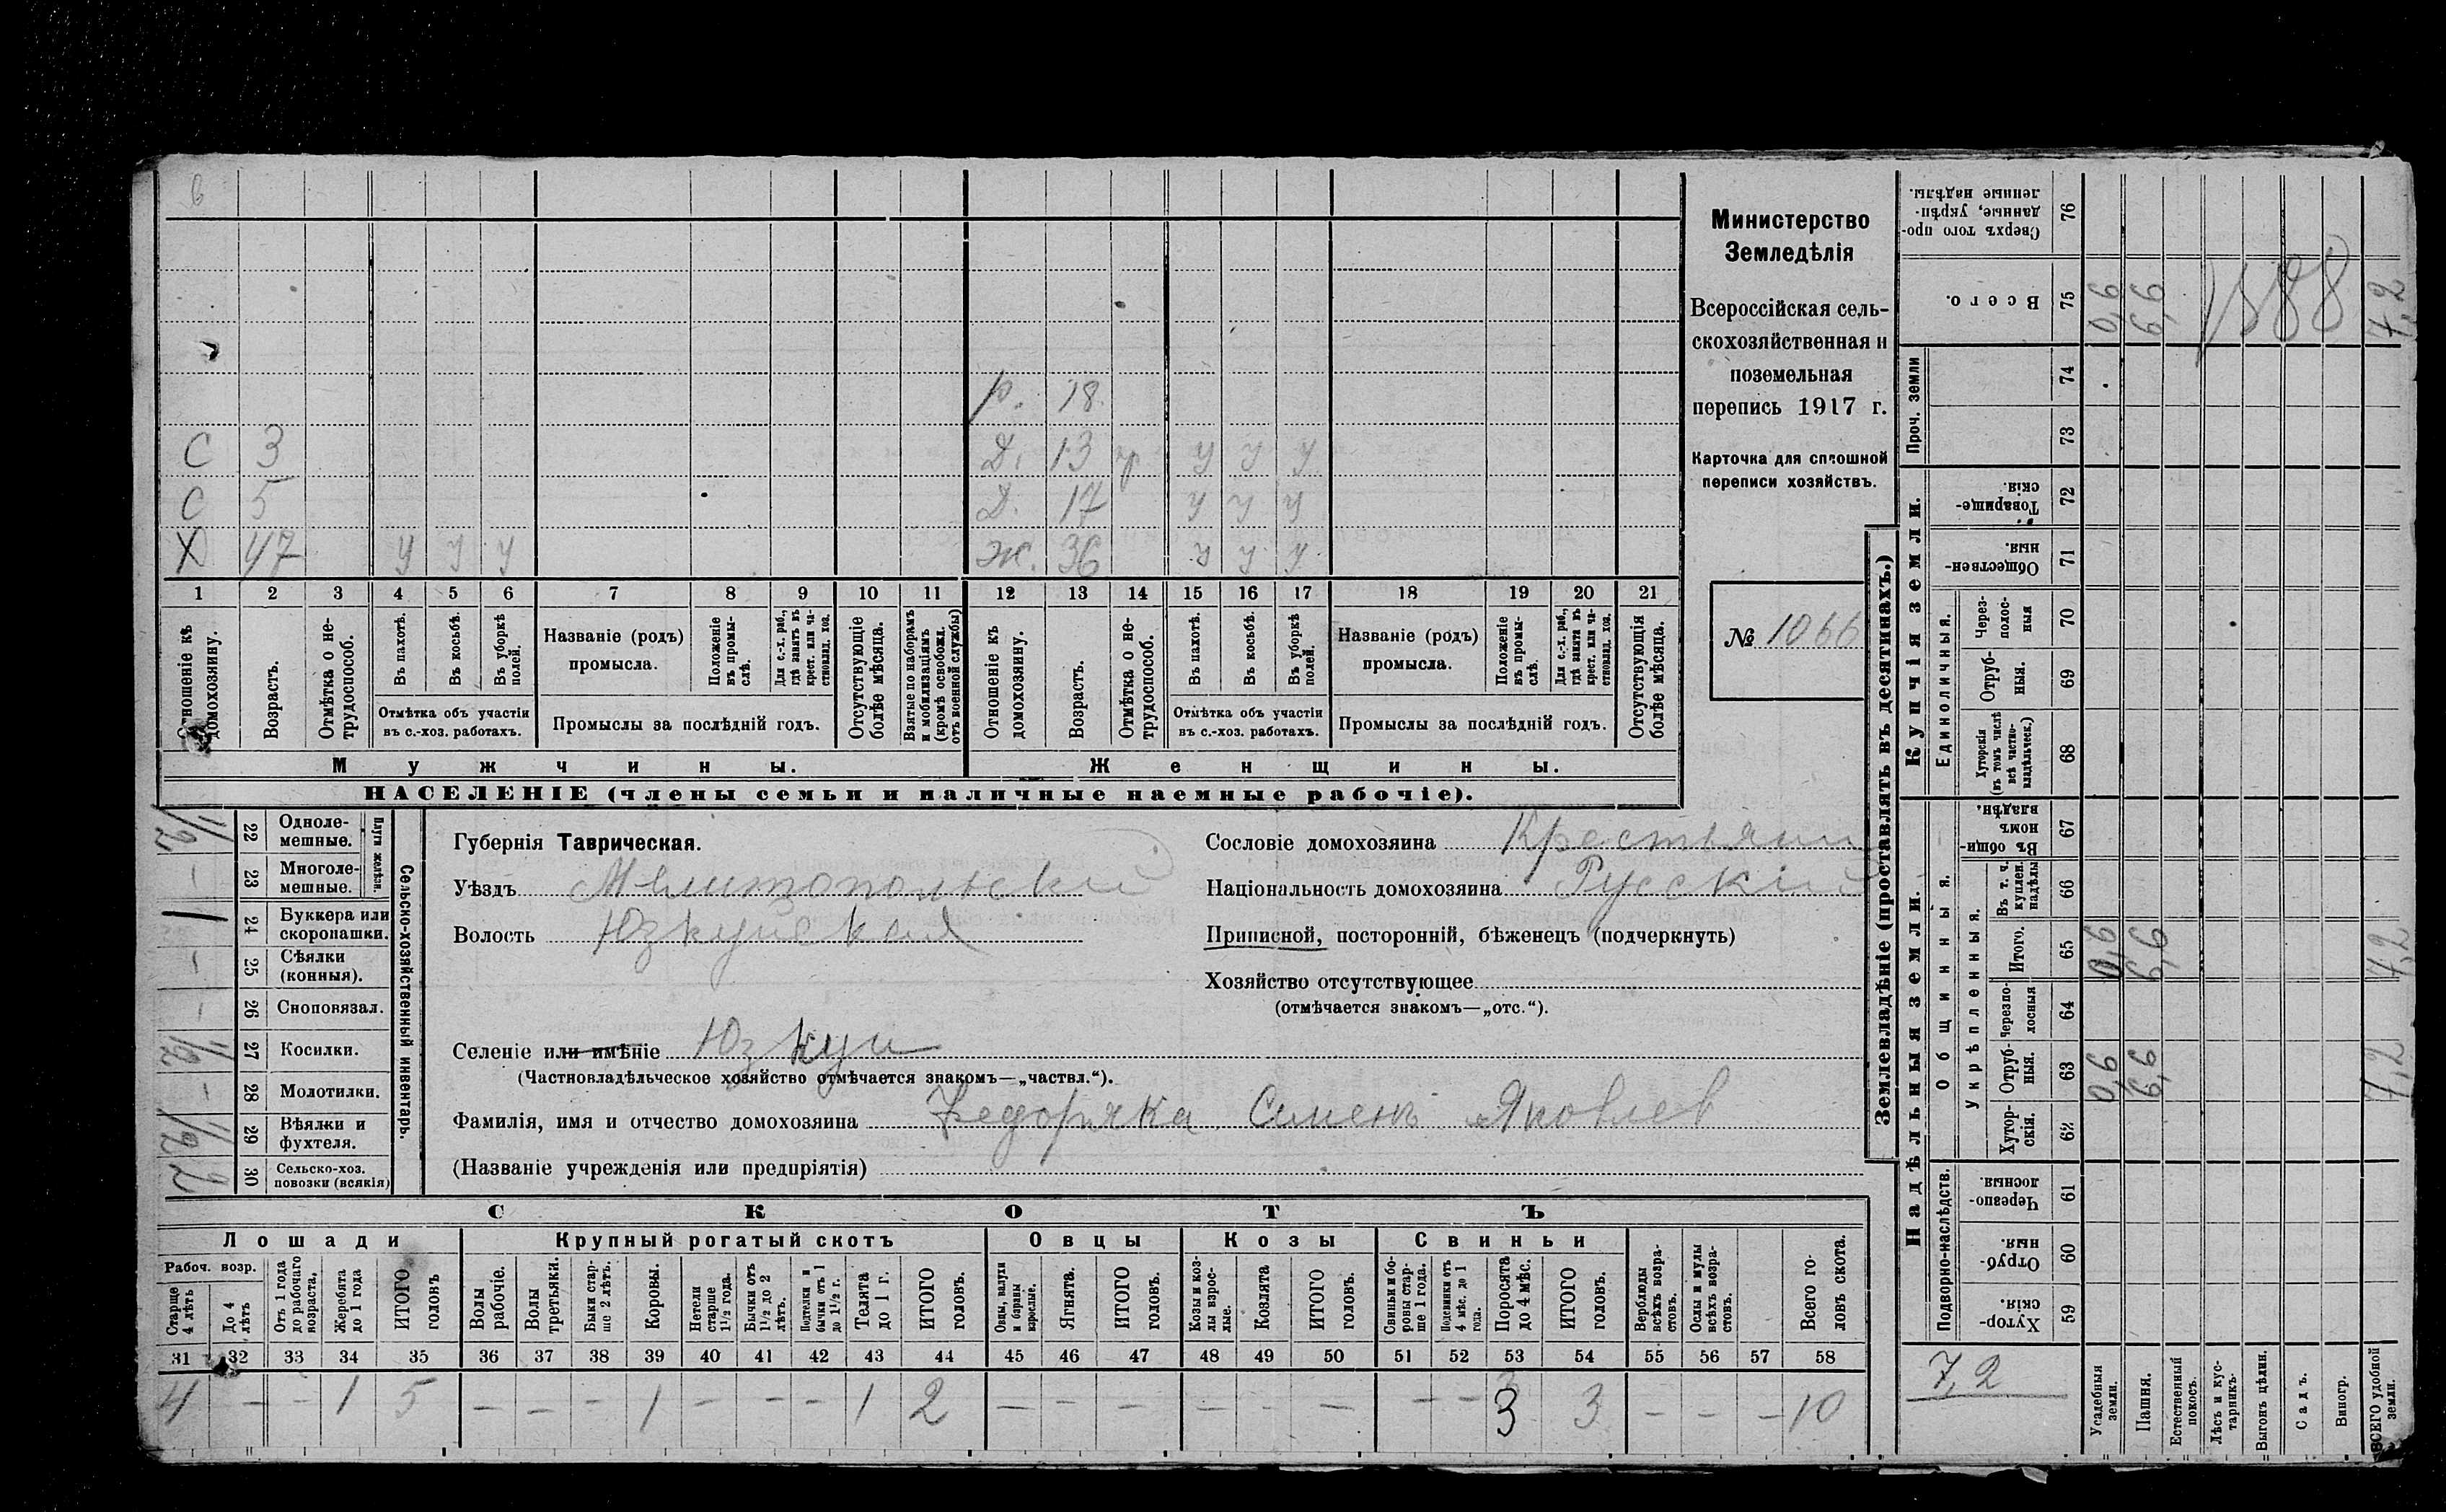 Министерство
Земледѣлія
Всероссійская сель-
скохозяйственная и
поземельная
перепись 1917 г.
Карточка для сплошной
переписи хозяйствъ.
№ 1066
р. 18
С 3 Д. 13 У У У
С 5 Д. 17 У У У
Х 47 У У У Ж. 36 У У У
1 2 3 4 5 6 7 8 9 10 11 12 13 14 15 16 17 18 19 20 21
Отношеніе къ домохозяину.
Возрастъ.
Отмѣтка о не-трудоспособ.
Въ пахотѣ.
Въ косьбѣ.
Въ уборкѣ полей.
Отмѣтка объ участіи
въ с.-хоз. работахъ.
Названіе (родъ)
промысла.
Положеніе въ промы-слѣ.
Для с.-х. раб., гдѣ занятъ въ крест. или ча-стновлад. хоз.
Промыслы за послѣдній годъ.
Отсутствующіе болѣе мѣсяца.
Взятые по наборамъ и мобилизаціямъ (кромѣ освобожд. отъ военной службы)
Отношеніе къ домохозяину.
Возрастъ.
Отмѣтка о не-трудоспособ.
Въ пахотѣ.
Въ косьбѣ.
Въ уборкѣ полей.
Отмѣтка объ участіи
въ с.-хоз. работахъ.
Названіе (родъ)
промысла.
Положеніе въ промы-слѣ.
Для с.-х. раб., гдѣ занята въ крест. или ча-стновлад. хоз.
Промыслы за послѣдній годъ.
Отсутствующія болѣе мѣсяца.
Мужчины. Женщины.
НАСЕЛЕНІЕ (члены семьи и наличные наемные рабочіе).
Сельско-хозяйственный инвентарь.
Плуги желѣзн.
1/2 22 Одноле-мешные.
- 23 Многоле-мешные.
1 24 Буккера или скоропашки.
- 25 Сѣялки (конныя).
- 26 Сноповязал.
1/2 27 Косилки.
- 28 Молотилки.
1/2 29 Вѣялки и фухтеля.
2 30 Сельско-хоз. повозки (всякія)
Губернія Таврическая.
Уѣздъ Мелитопольскій
Волость Юзкуйская
Сословіе домохозяина Крестьянин
Національность домохозяина Русскій
Приписной, посторонній, бѣженецъ (подчеркнуть)
Хозяйство отсутствующее
(отмѣчается знакомъ—„отс.“).
Селеніе или имѣніе Юзкуи
(Частновладѣльческое хозяйство отмѣчается знакомъ—„частвл.“).
Фамилія, имя и отчество домохозяина Семенъ Яковлев
(Названіе учрежденія или предпріятія)
СКОТЪ
Лошади Крупный рогатый скотъ Овцы Козы Свиньи
Рабоч. возр.
Старше 4 лѣтъ
До 4 лѣтъ
Отъ 1 года до рабочаго возраста,
Жеребята до 1 года
ИТОГО головъ
Волы рабочіе.
Волы третьяки.
Быки стар-ше 2 лѣтъ.
Коровы.
Нетели старше 1½ года.
Бычки отъ 1½ до 2 лѣтъ.
Подтелки и бычки отъ 1 до 1½ г.
Телята до 1 г.
ИТОГО головъ.
Овцы, валухи и бараны взрослые.
Ягнята.
ИТОГО головъ.
Козы и коз-лы взрос-лые.
Козлята
ИТОГО головъ.
Свиньи и бо-ровы стар-ше 1 года.
Подсвинки отъ 4 мѣс. до 1 года.
Поросята до 4 мѣс.
ИТОГО головъ.
Верблюды всѣхъ возра-стовъ.
Ослы и мулы всѣхъ возра-стовъ.
Всего го-ловъ скота.
31 32 33 34 35 36 37 38 39 40 41 42 43 44 45 46 47 48 49 50 51 52 53 54 55 56 57 58
4 - - 1 5 - - - 1 - - - 1 2 - - - - - - - - 3 3 - - - 10
Землевладѣніе (проставлять въ десятинахъ.)
Надѣльныя земли. Купчія земли. Проч. земли
Подворно-наслѣдств.
Общинныя.
Укрѣпленныя.
Единоличныя.
Сверхъ того про-данные, укрѣп-ленные надѣлы. 76
Всего. 75 0,6 6,6 1888 7,2
74
73
Товарище-скія. 72
Обществен-ныя. 71
Через-полос-ныя 70
Отруб-ныя. 69
Хуторскія (въ томъ числѣ всѣ частно-владѣльческ.) 68
Въ общи-номъ владѣн. 67
Въ т. ч. куплен. надѣлы 66
Итого. 65 0,6 6,6 7,2
Черезпо-лосныя 64
Отруб-ныя. 63 0,6 6,6 7,2
Хутор-скія. 62
Черезпо-лосныя. 61
Отруб-ныя. 60
Хутор-скія. 59
7,2
Усадебныя земли.
Пашня.
Естественный покосъ.
Лѣсъ и кус-тарникъ.
Выгонъ цѣлин.
Садъ.
Виногр.
ВСЕГО удобной земли.